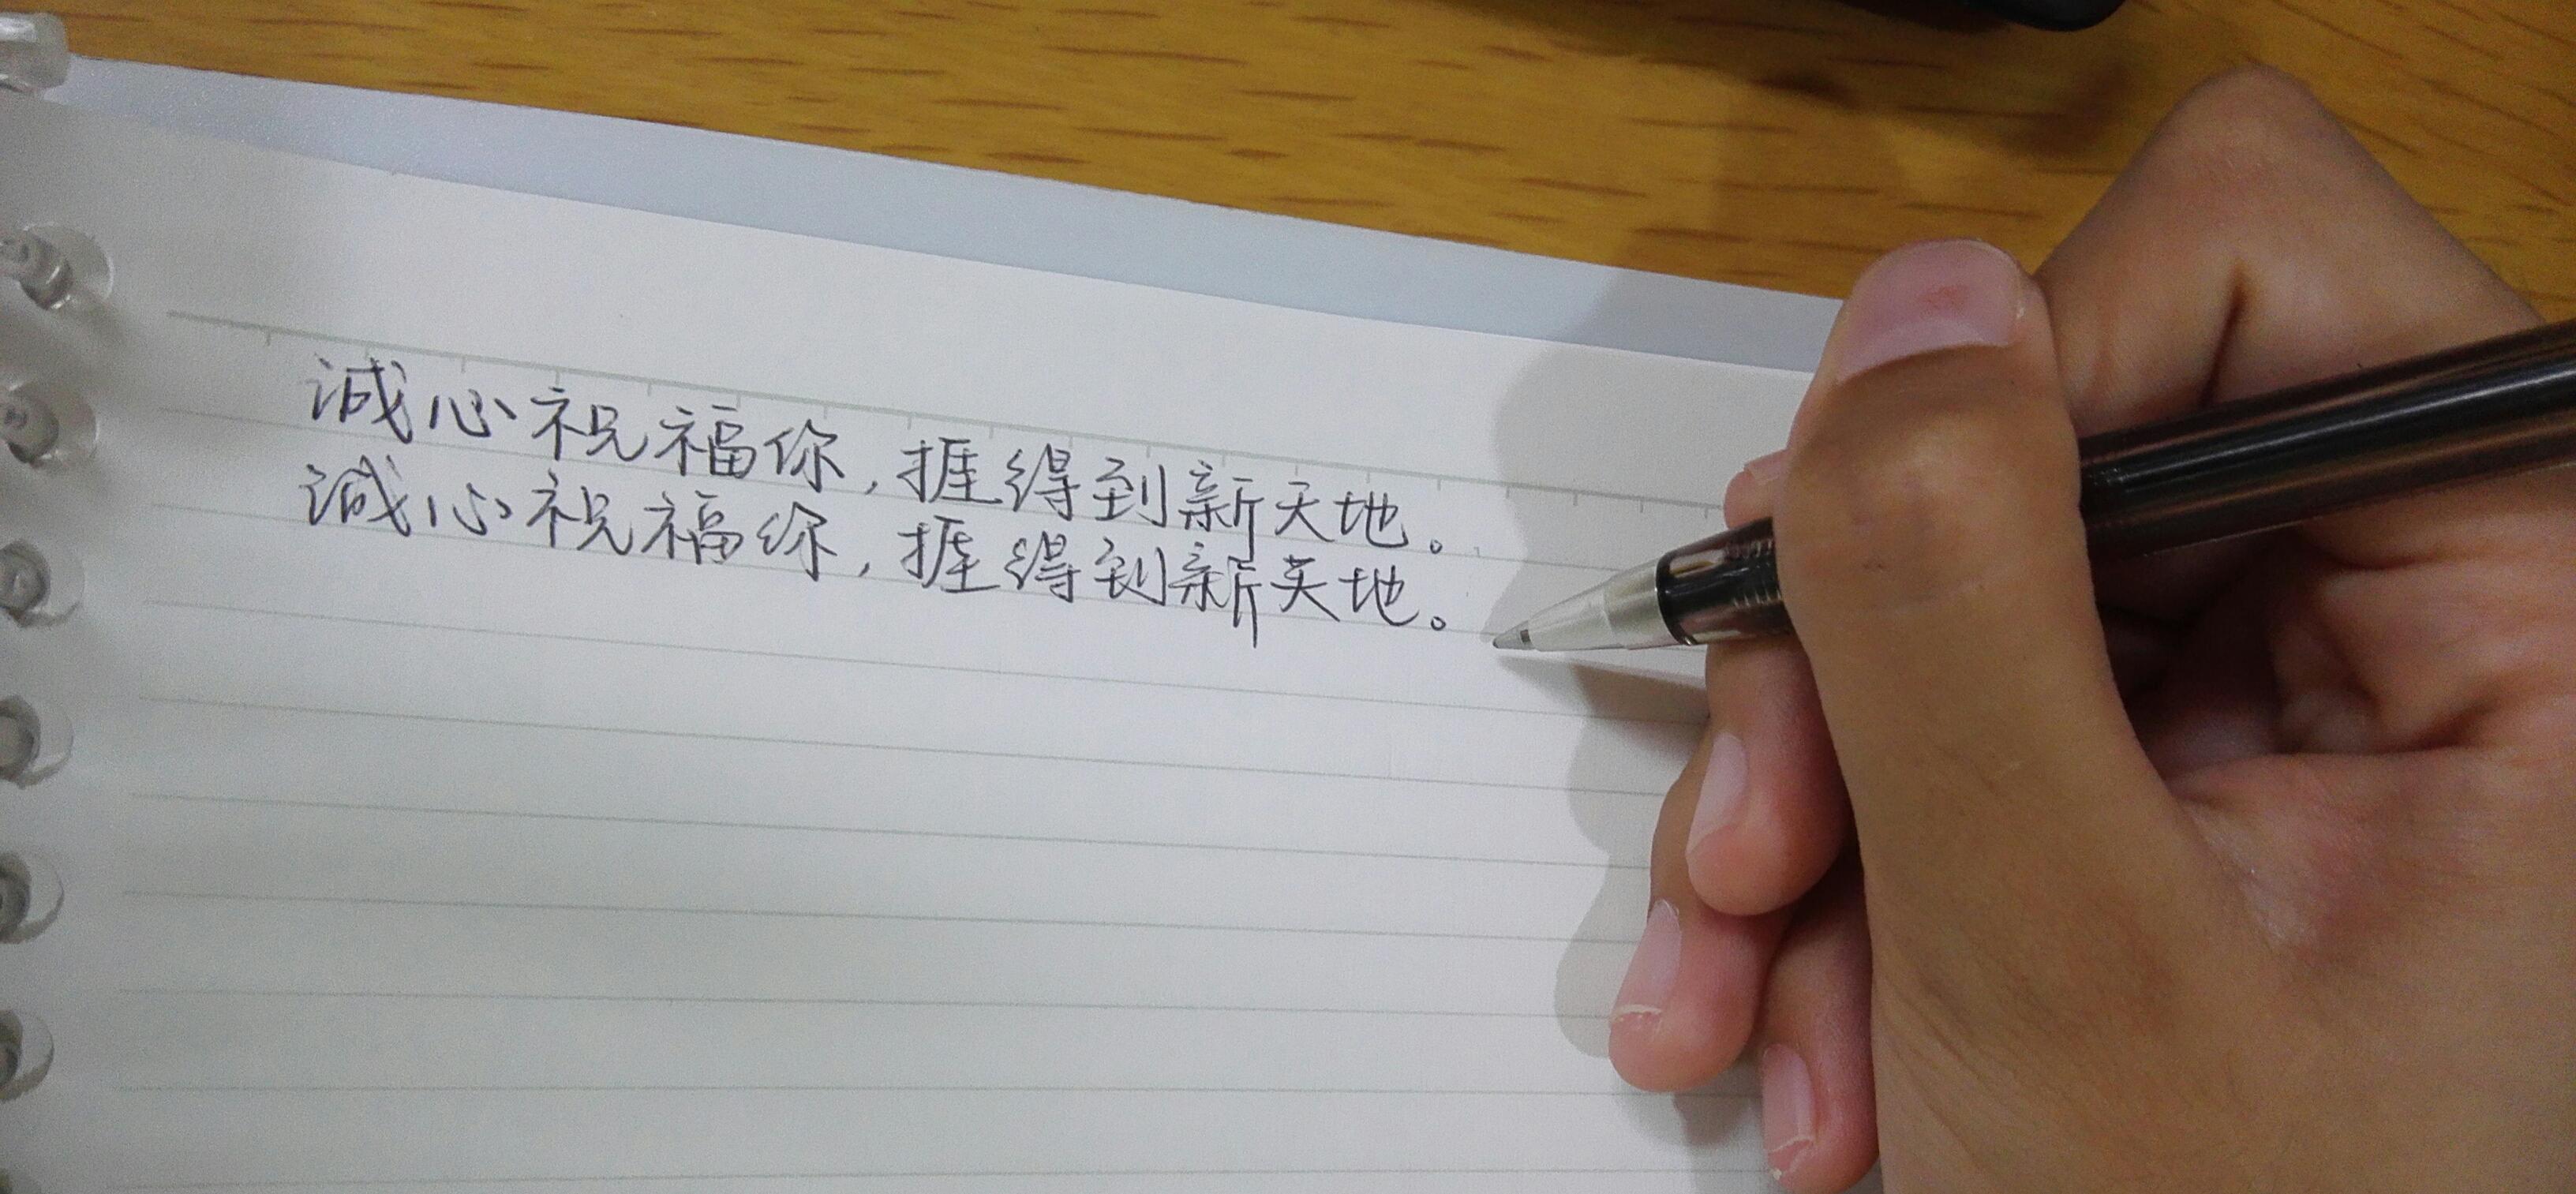 诚心祝福你,捱得到新天地。
诚心祝福你,捱得到新天地。